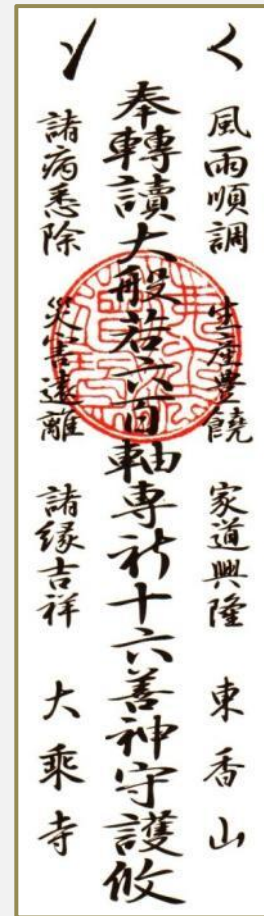 風雨順調 生産豊饒 家道興隆 東香山
奉轉讀大般若六百軸専祈十六善神守護攸
諸病悉除 災害遠離 諸縁吉祥 大乘寺